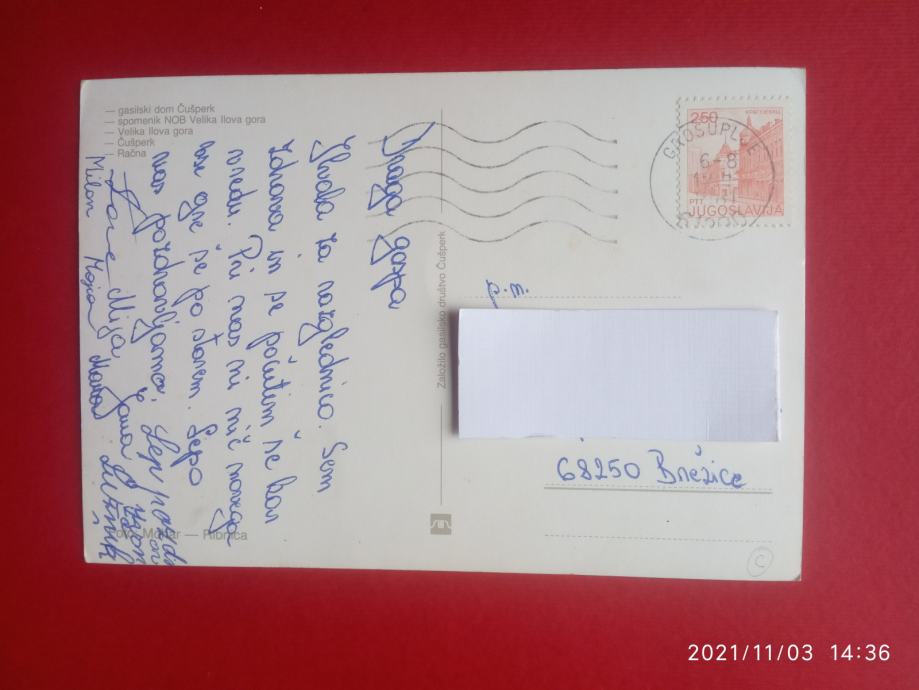 — gasilski dom Čušperk
— spomenik NOB Velika Ilova gora
— Velika Ilova gora
— Čušperk
— Račna
Draga gospa
Hvala za razglednico. Sem
zdrava in se počutim še kar
v redu. Pri nas ni nič novega
vse gre še po starem. Lepo
vas pozdravljamo,
Lep pozdr
Mija
Jana
Milan Mojca
Založilo gasilsko društvo Čušperk
Foto Mohar — Ribnica
250
PTT
JUGOSLAVIJA
GROSUPLJE
6-8
68250 Brežice
C
2021/11/03 14:36